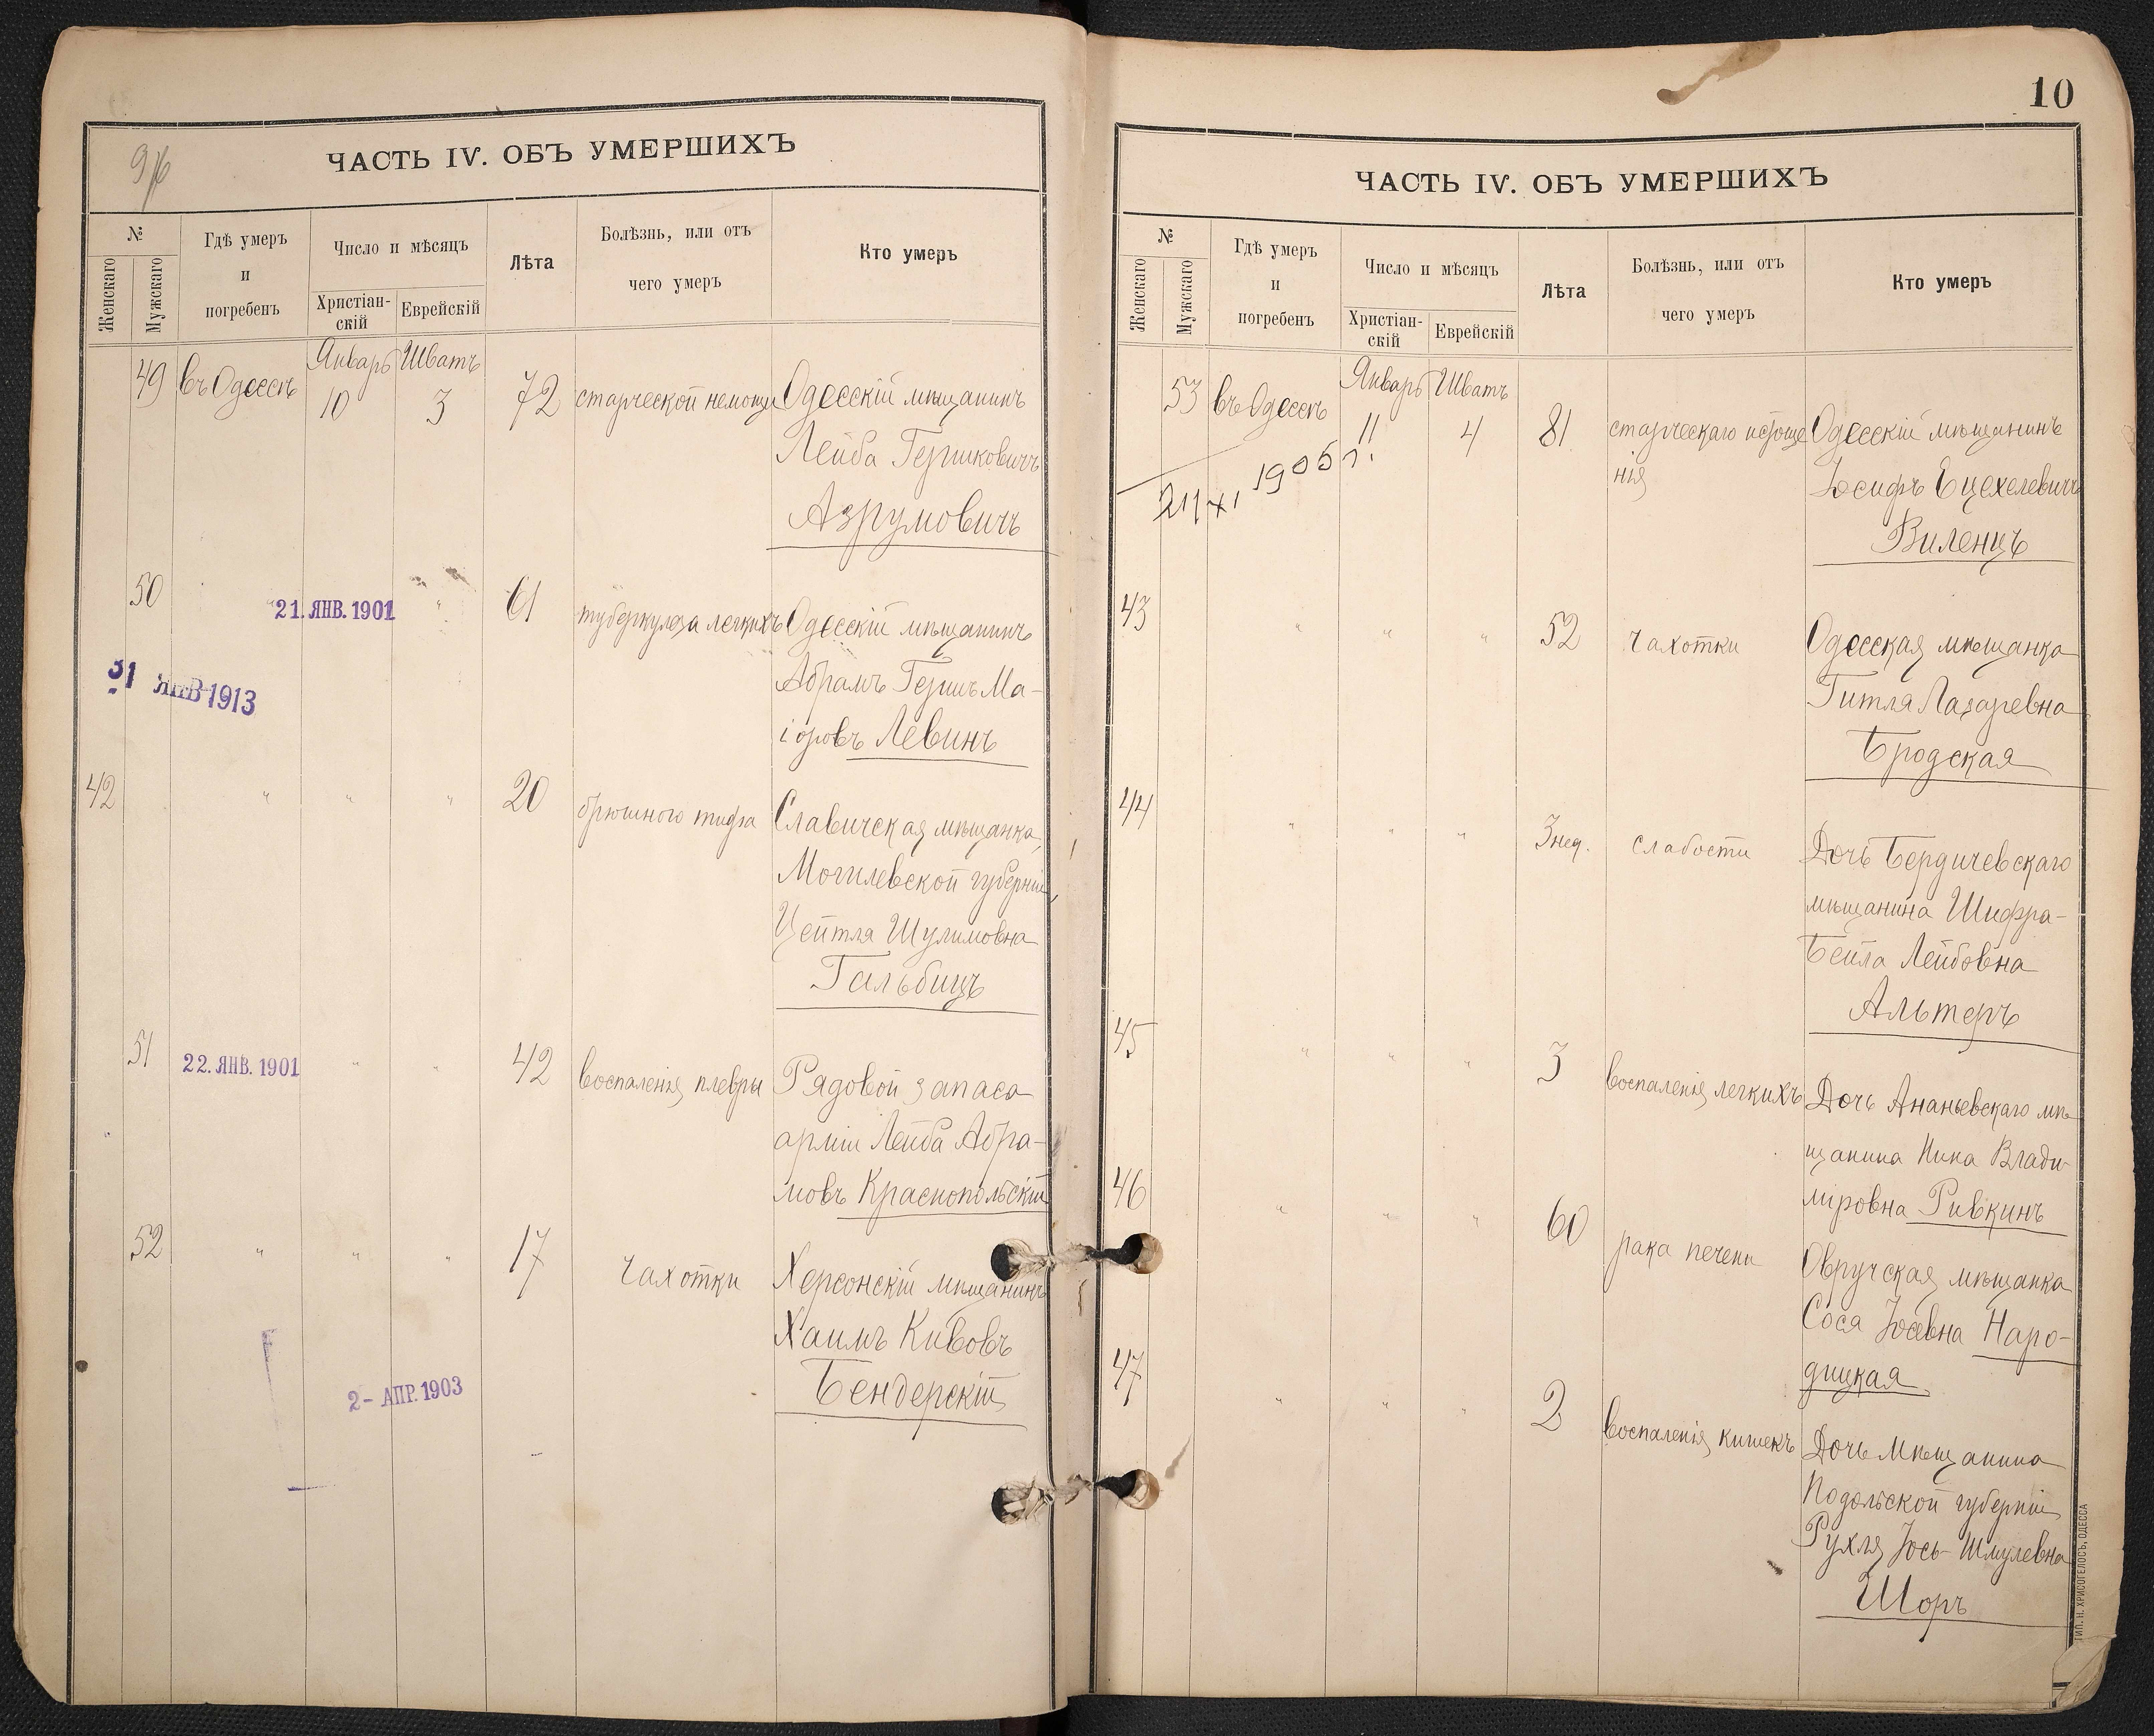 ЧАСТЬ IV. ОБЪ УМЕРШИХЪ
№
Женскаго
Мужскаго
Гдѣ умеръ
и
погребенъ
Число и мѣсяцъ
Христіан-
скій
Еврейскій
Лѣта
Болѣзнь, или отъ
чего умеръ
Кто умеръ
Январь Шватъ
49 въ Одессѣ 10 3 72 старческой немощи Одесскій мѣщанинъ
Лейба Гершковичъ
Азрумовичъ
50 21. ЯНВ. 1901 " 61 туберкулеза легкихъ Одесскій мѣщанинъ
Абрамъ Гершъ Ма-
іоровъ Левинъ
31 ЯНВ 1913
42 " " " 20 брюшного тифа Славичская мѣщанка,
Могилевской губерніи,
Цейтля Шулимовна
Гальбицъ
51 22. ЯНВ. 1901 " " 42 воспаленія плевры Рядовой запаса
арміи Лейба Абра-
мовъ Краснопольскій
52 " " " 17 чахотки Херсонскій мѣщанинъ
Хаимъ Кивовъ
Бендерскій
2 - АПР. 1903
10
ЧАСТЬ IV. ОБЪ УМЕРШИХЪ
№
Женскаго
Мужскаго
Гдѣ умеръ
и
погребенъ
Число и мѣсяцъ
Христіан-
скій
Еврейскій
Лѣта
Болѣзнь, или отъ
чего умеръ
Кто умеръ
Январь Шватъ
53 въ Одессѣ 11 4 81 старческаго истоще Одесскій мѣщанинъ
нія Іосифъ Ецехелевичъ
Виленцъ
21/XI 1905 г.
43 " " " 52 чахотки Одесская мѣщанка
Гитля Лазаревна
Бродская
44 " " " 3 нед. слабости Дочь Бердичевскаго
мѣщанина Шифра-
Бейла Лейбовна
Альтеръ
45 " " " 3 воспаленія легкихъ Дочь Ананьевскаго мѣ-
щанина Нина Влади-
міровна Ривкинъ
46 " " " 60 рака печени Овручская мѣщанка
Сося Іосевна Наро-
дицкая
47 " " " 2 воспаленія кишекъ Дочь мѣщанина
Подольской губерніи
Рухля Іось-Шмулевна
Шоръ
ТИП. Н. ХРИСОГЕЛОСЪ, ОДЕССА